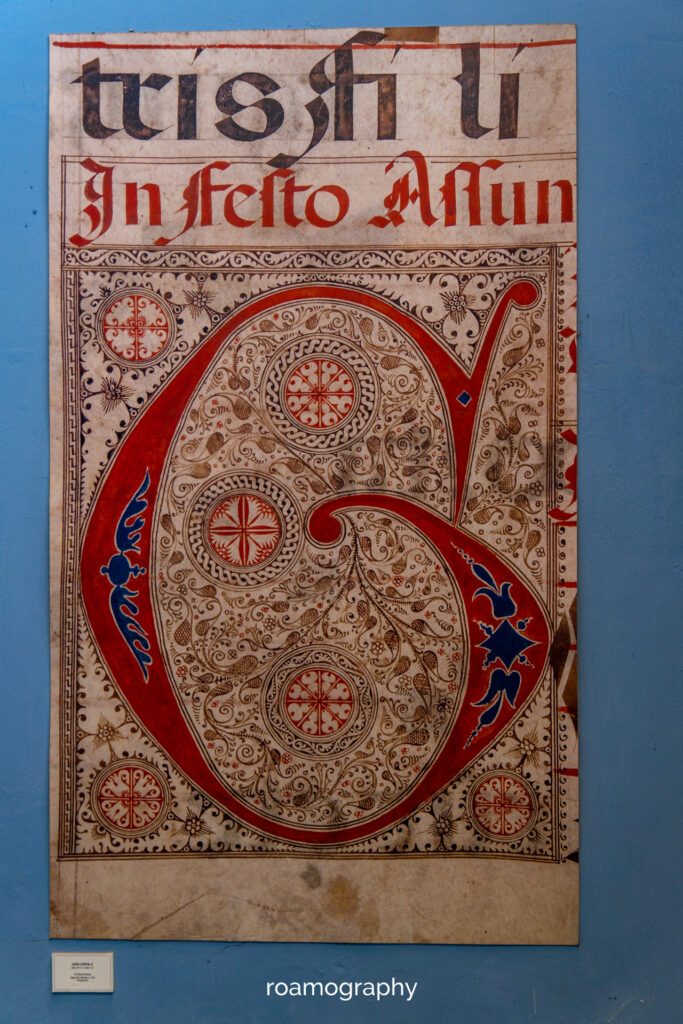 tris fi li
In Festo Assun
G
roamography